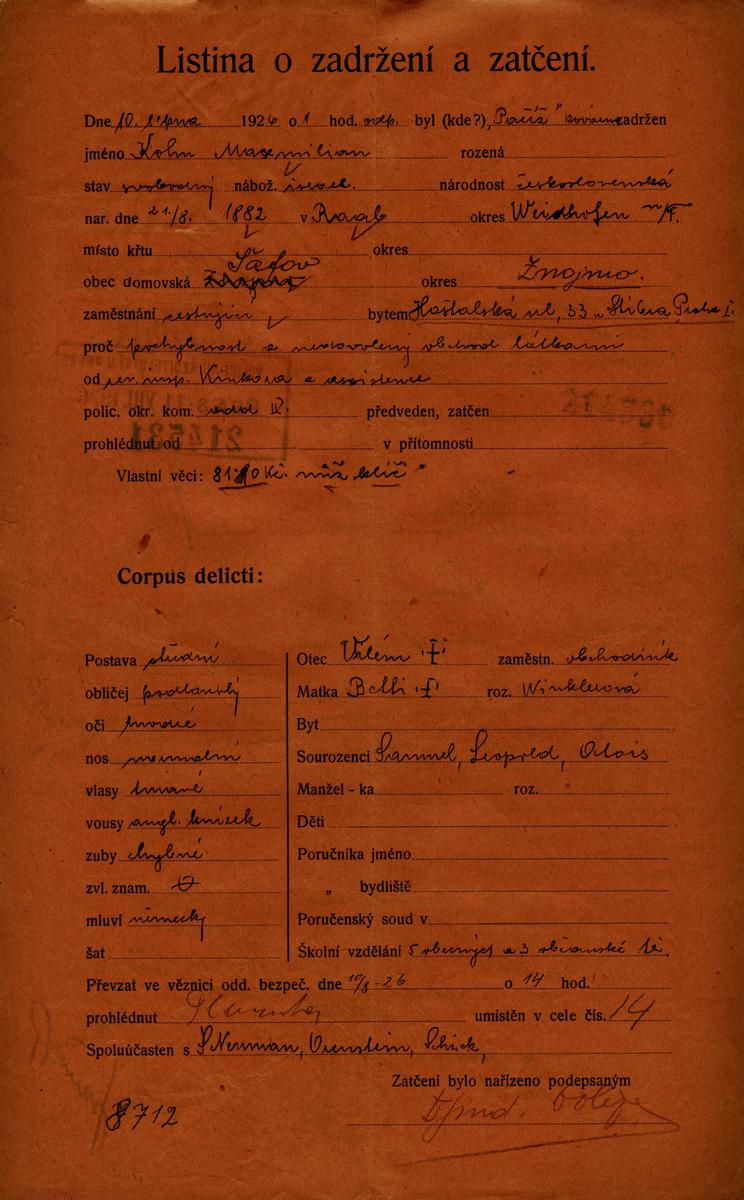 Listina o zadržení a zatčení.
Dne 10. srpna 1926 o 1 hod. odp. byl (kde?) „Paříž" zadržen
jméno Kohn Maxmilian rozená
stav svobodný nábož. israel. národnost československá
nar. dne 21/8. 1882 v Raab okres Weidhofen n/T.
místo křtu okres
obec domovská Šafov okres Znojmo.
zaměstnání cestující bytem Haštalská ul, 33 u Praha I.
proč pochybnost a nedovolený obchod látkami
od rev. insp. a assistence
polic. okr. kom. odd IV. předveden, zatčen
prohlédnut od v přítomnosti
Vlastní věci: Kč. nůž, klíč
Corpus delicti:
Postava střední
obličej podlouhlý
oči hnědé
nos normalní
vlasy tmavé
vousy angl. knírek
zuby chybné
zvl. znam.
mluví německy
šat
Otec Vilém † zaměstn. obchodník
Matka Betti † roz. Winklerová
Byt
Sourozenci Samuel, Leopold, Alois
Manžel - ka roz.
Děti
Poručníka jméno
„ bydliště
Poručenský soud v
Školní vzdělání 5 obecných a 3 občanské tř.
Převzat ve věznici odd. bezpeč. dne 10/8-26 o 14 hod.
prohlédnut umístěn v cele čís. 14
Spoluúčasten s Neuman, Orenstein, Schick,
Zatčení bylo nařízeno podepsaným
8712